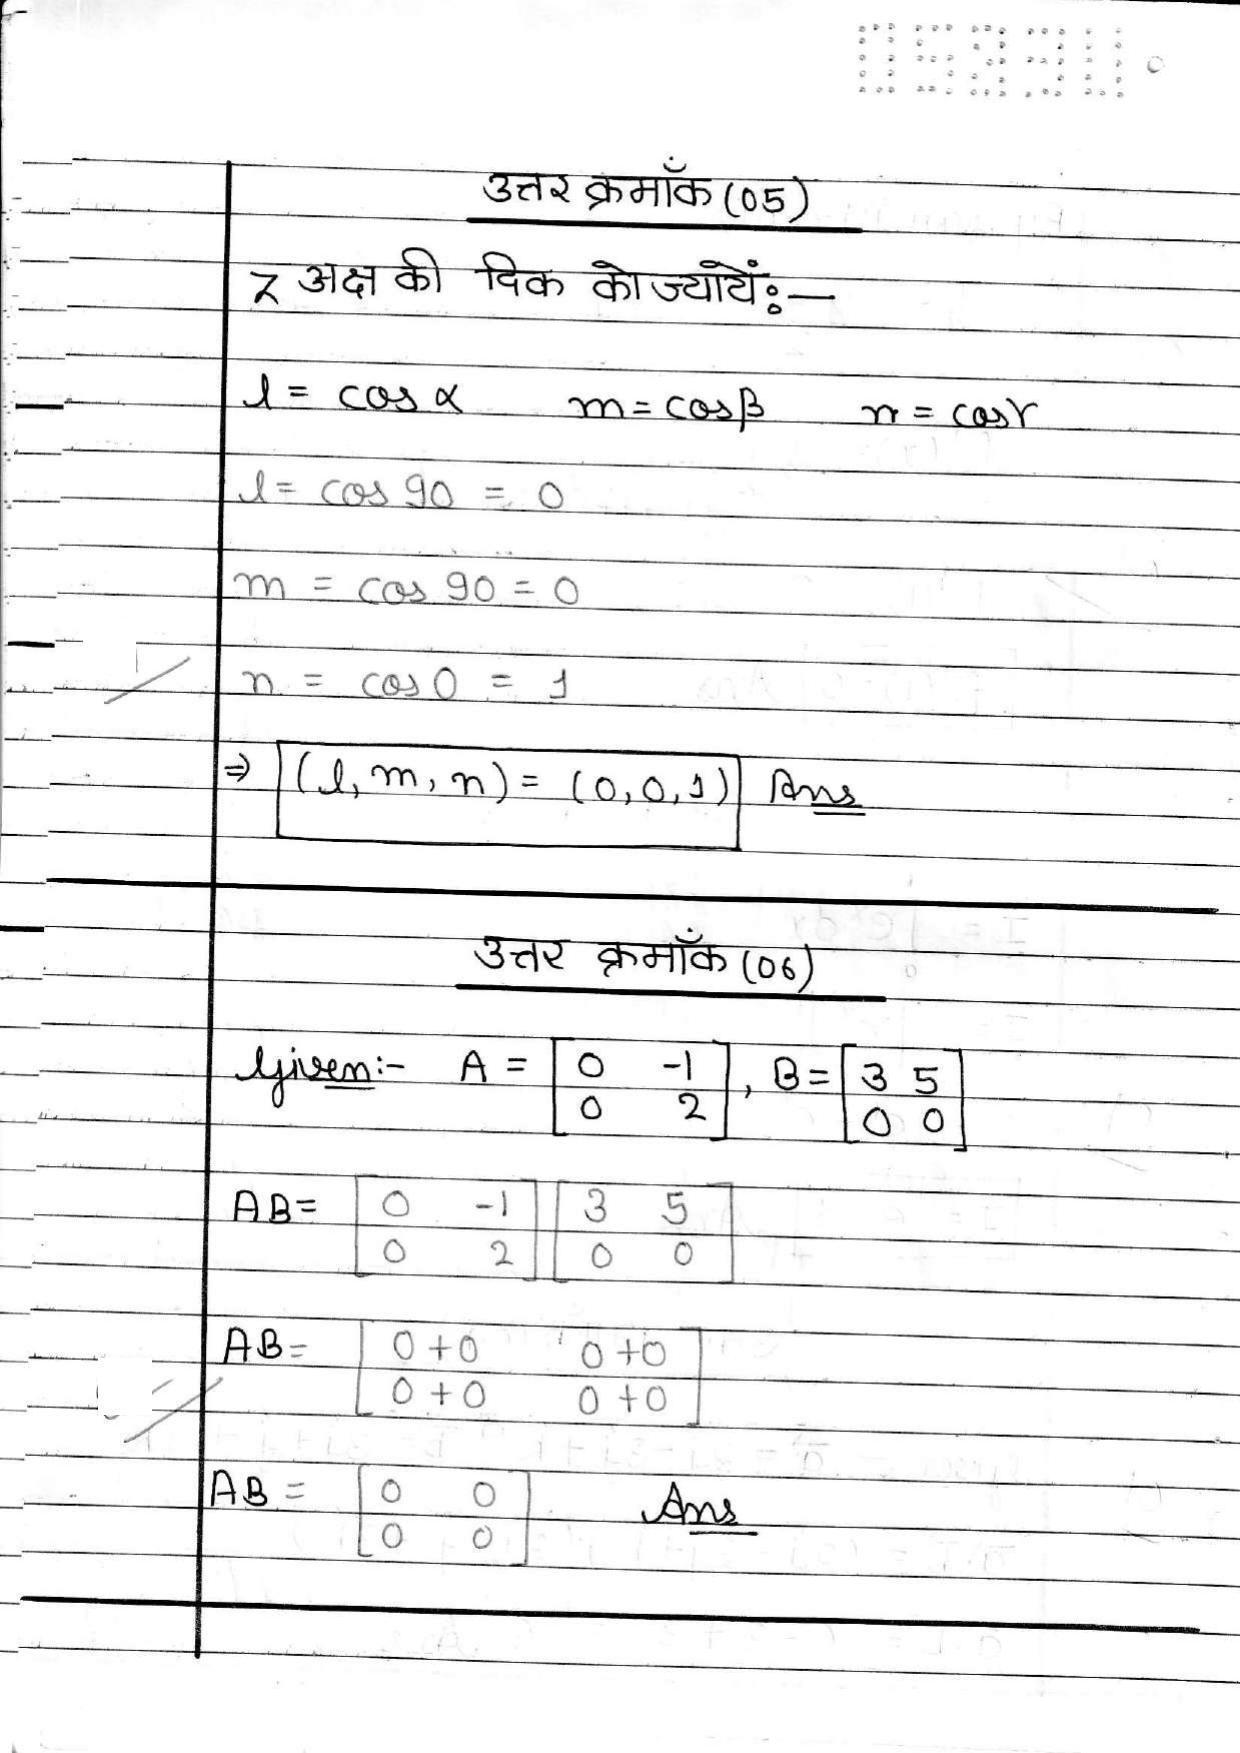 उत्तर क्रमाँक (05)
z अक्ष की दिक कोज्यायें:—
l = cos α m = cos β n = cos γ
l = cos 90 = 0
m = cos 90 = 0
n = cos 0 = 1
⇒ (l, m, n) = (0, 0, 1) Ans
उत्तर क्रमाँक (06)
Given:- A = [0 -1], B = [3 5]
[0 2] [0 0]
AB = [0 -1] [3 5]
[0 2] [0 0]
AB = [0+0 0+0]
[0+0 0+0]
AB = [0 0] Ans
[0 0]